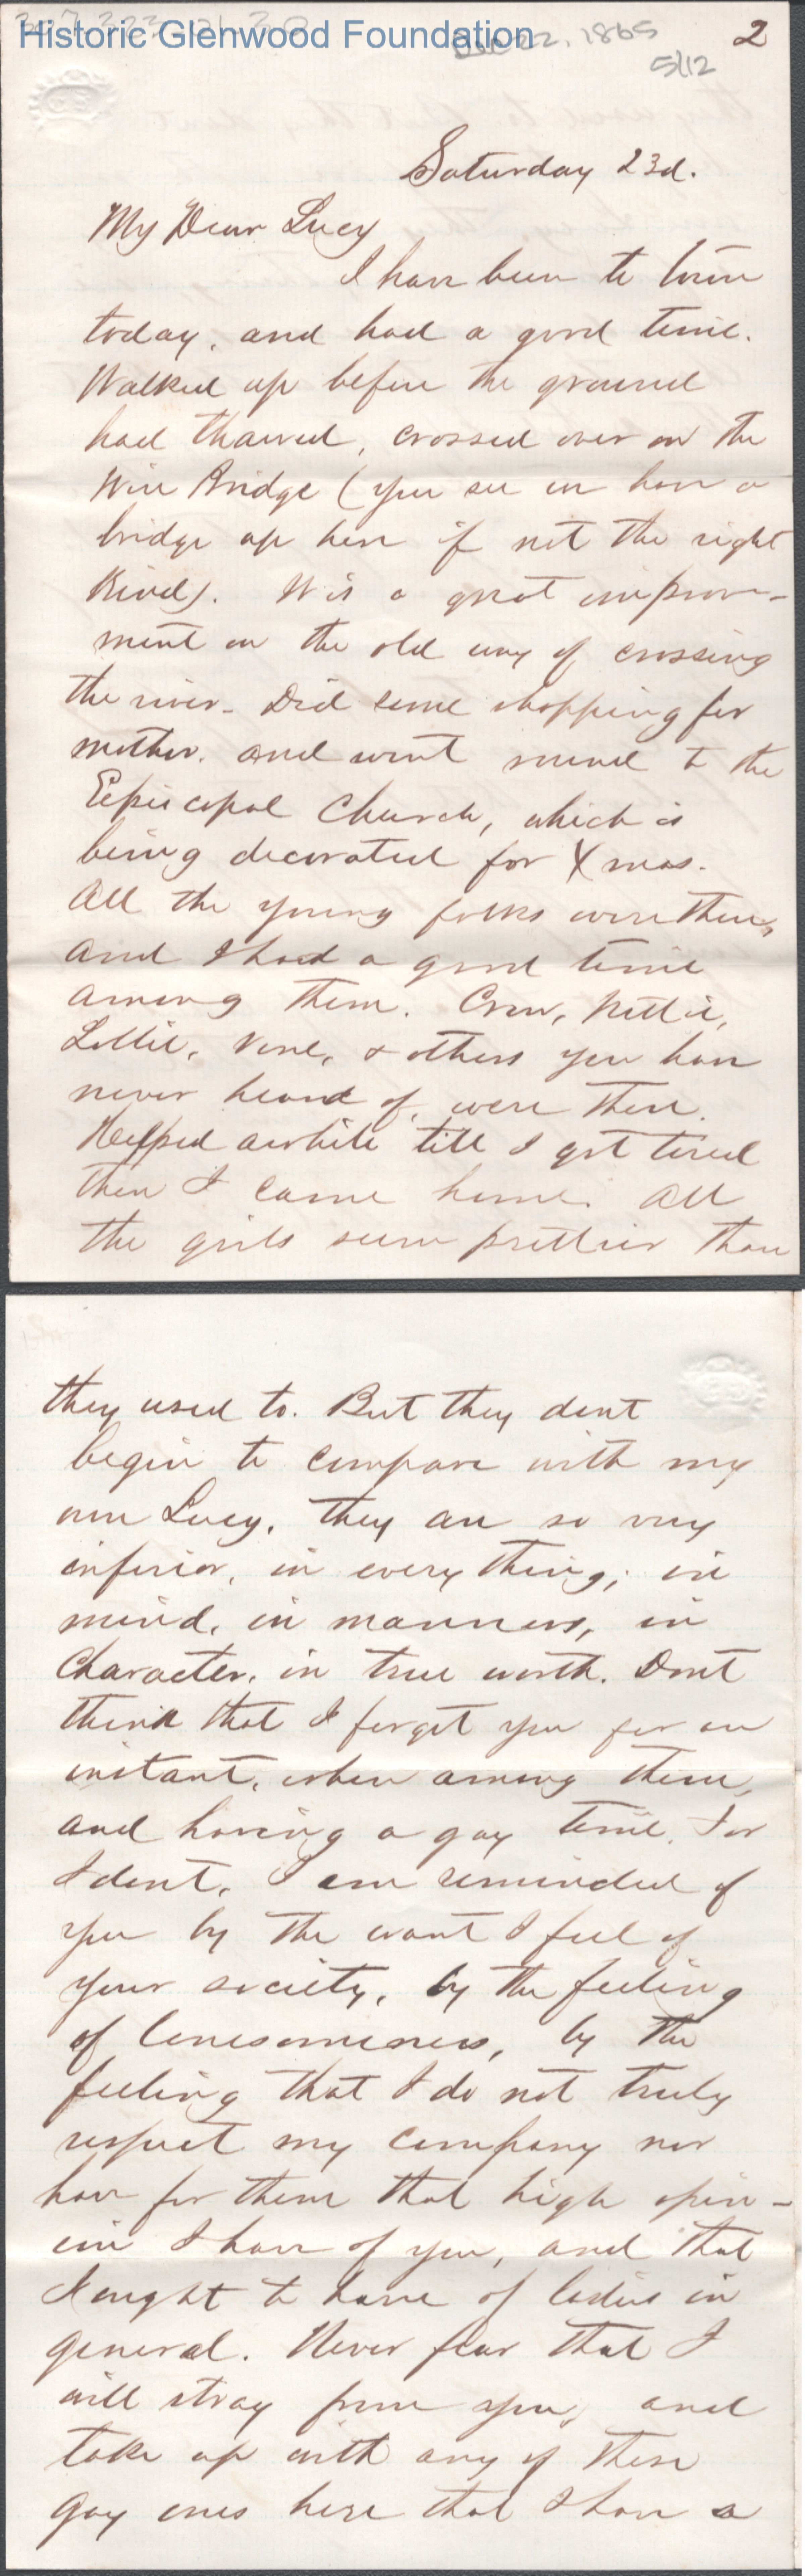 Historic Glenwood Foundation
22, 1865
2
5/12
Saturday 23d.
My Dear Lucy
I have been to town
today, and had a good time.
Walked up before the ground
had thawed, crossed over on the
Wire Bridge (you see we have a
bridge up here if not the right
kind). It is a great improve-
ment on the old way of crossing
the river. Did some shopping for
mother, and went round to the
Episcopal Church, which is
being decorated for Xmas.
All the young folks were there,
and I had a good time
among them. Nettie,
Lollie, & others you have
never heard of, were there.
Helped awhile till I got tired
then I came home. All
the girls seem prettier than
they used to. But they dont
begin to compare with my
own Lucy. They are so very
inferior, in every thing; in
mind, in manners, in
character, in true worth. Dont
think that I forget you for an
instant, when among them,
and having a gay time, for
I dont. I am reminded of
you by the want I feel of
your society, by the feeling
of lonesomeness, by the
feeling that I do not truly
respect my company nor
have for them that high opin-
ion I have of you, and that
I ought to have of ladies in
general. Never fear that I
will stray from you, and
take up with any of these
gay ones here that I have a